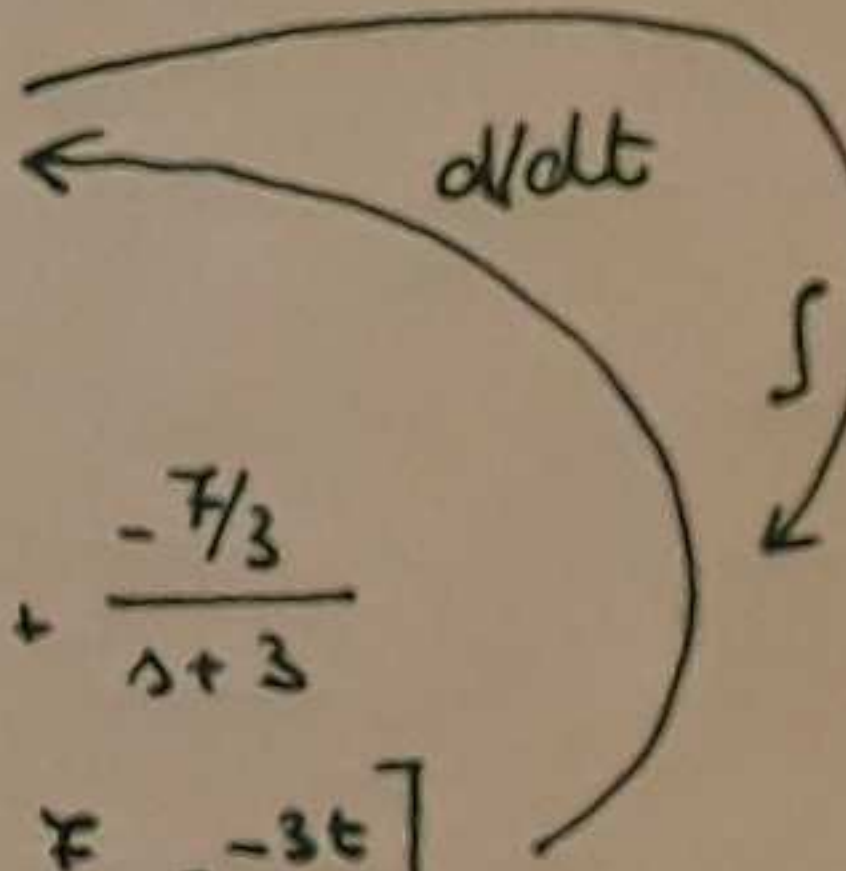 d/dt
∫
+ -7/3
s+3
7 -3t ]